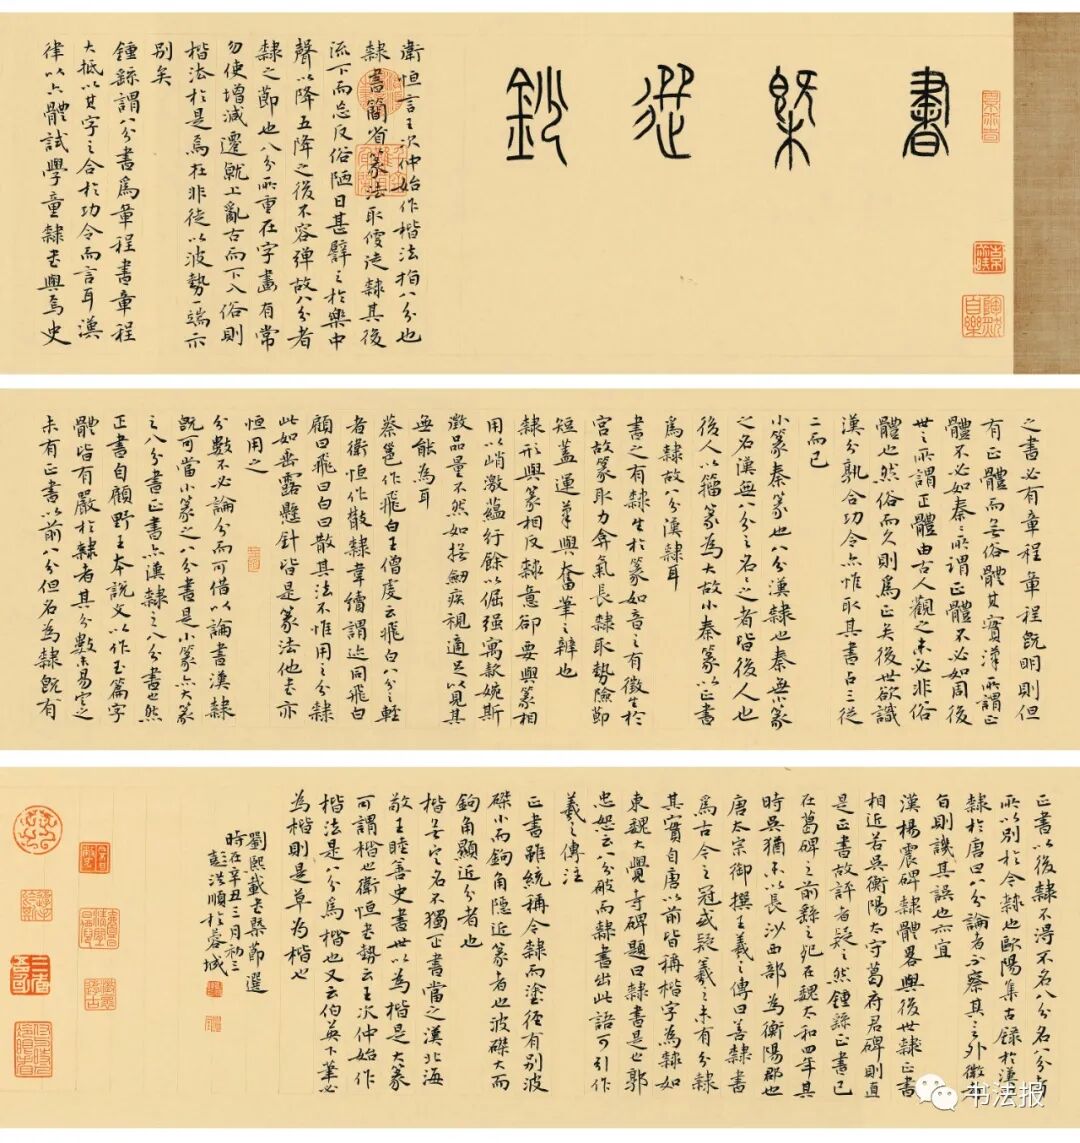 書槩選鈔
衛恒言王次仲始作楷法指八分也
隸書簡省篆法取便徒隸其後
流下而忘反俗陋日甚譬之於樂中
聲以降五降之後不容彈故八分者
隸之節也八分所重在字畫有常
勿使增減遷就上亂古而下入俗則
楷法於是焉在非徒以波勢一端示
別矣
鍾繇謂八分書爲章程書章程
大抵以其字之合於功令而言耳漢
律以六體試學童隸書與焉史
之書必有章程章程既明則但
有正體而無俗體其實漢所謂正
體不必如秦秦所謂正體不必如周後
世之所謂正體由古人觀之未必非俗
體也然俗而久則爲正矣後世欲識
漢分孰合功令亦惟取其書占三從
二而已
小篆秦篆也八分漢隸也秦無小篆
之名漢無八分之名名之者皆後人也
後人以籀篆為大故小秦篆以正書
爲隸故八分漢隸耳
書之有隸生於篆如音之有徵生於
宮故篆取力弇氣長隸取勢險節
短蓋運筆與奮筆之辨也
隸形與篆相反隸意卻要與篆相
用以峭激蘊紆餘以倔强寓款婉斯
徵品量不然如撫劒疾視適足以見其
無能為耳
蔡邕作飛白王僧虔云飛白八分之輕
者衛恒作散隸韋續謂迹同飛白
顧曰飛曰白曰散其法不惟用之分隸
此如垂露懸針皆是篆法他書亦
恒用之
分數不必論分而可借以論書漢隸
既可當小篆之八分書是小篆亦大篆
之八分書正書亦漢隸之八分書也然
正書自顧野王本說文以作玉篇字
體皆有嚴於隸者其分數未易定之
未有正書以前八分但名為隸既有
正書以後隸不得不名八分名八分者
所以別於今隸也歐陽集古錄於漢曰
隸於唐曰八分論者不察其言外微
旨則譏其誤也亦宜
漢楊震碑隸體畧與後世隸正書
相近若吳衡陽太守葛府君碑則直
是正書故評者疑之然鍾繇正書已
在葛碑之前繇之死在魏太和四年其
時吳猶未以長沙西部為衡陽郡也
唐太宗御撰王羲之傳曰善隸書
爲古今之冠或疑羲之未有分隸
其實自唐以前皆稱楷字為隸如
東魏大覺寺碑題曰隸書是也郭
忠恕云八分破而隸書出此語可引作
羲之傳注
正書雖統稱今隸而塗徑有別波
磔小而鉤角隱近篆者也波磔大而
鉤角顯近分者也
楷無定名不獨正書當之漢北海
敬王睦善史書世以為楷是大篆
可謂楷也衛恒書勢云王次仲始作
楷法是八分爲楷也又云伯英下筆必
為楷則是草為楷也
劉熙載書槩節選
時在辛丑三月初三
彭洪順於蓉城
书法报